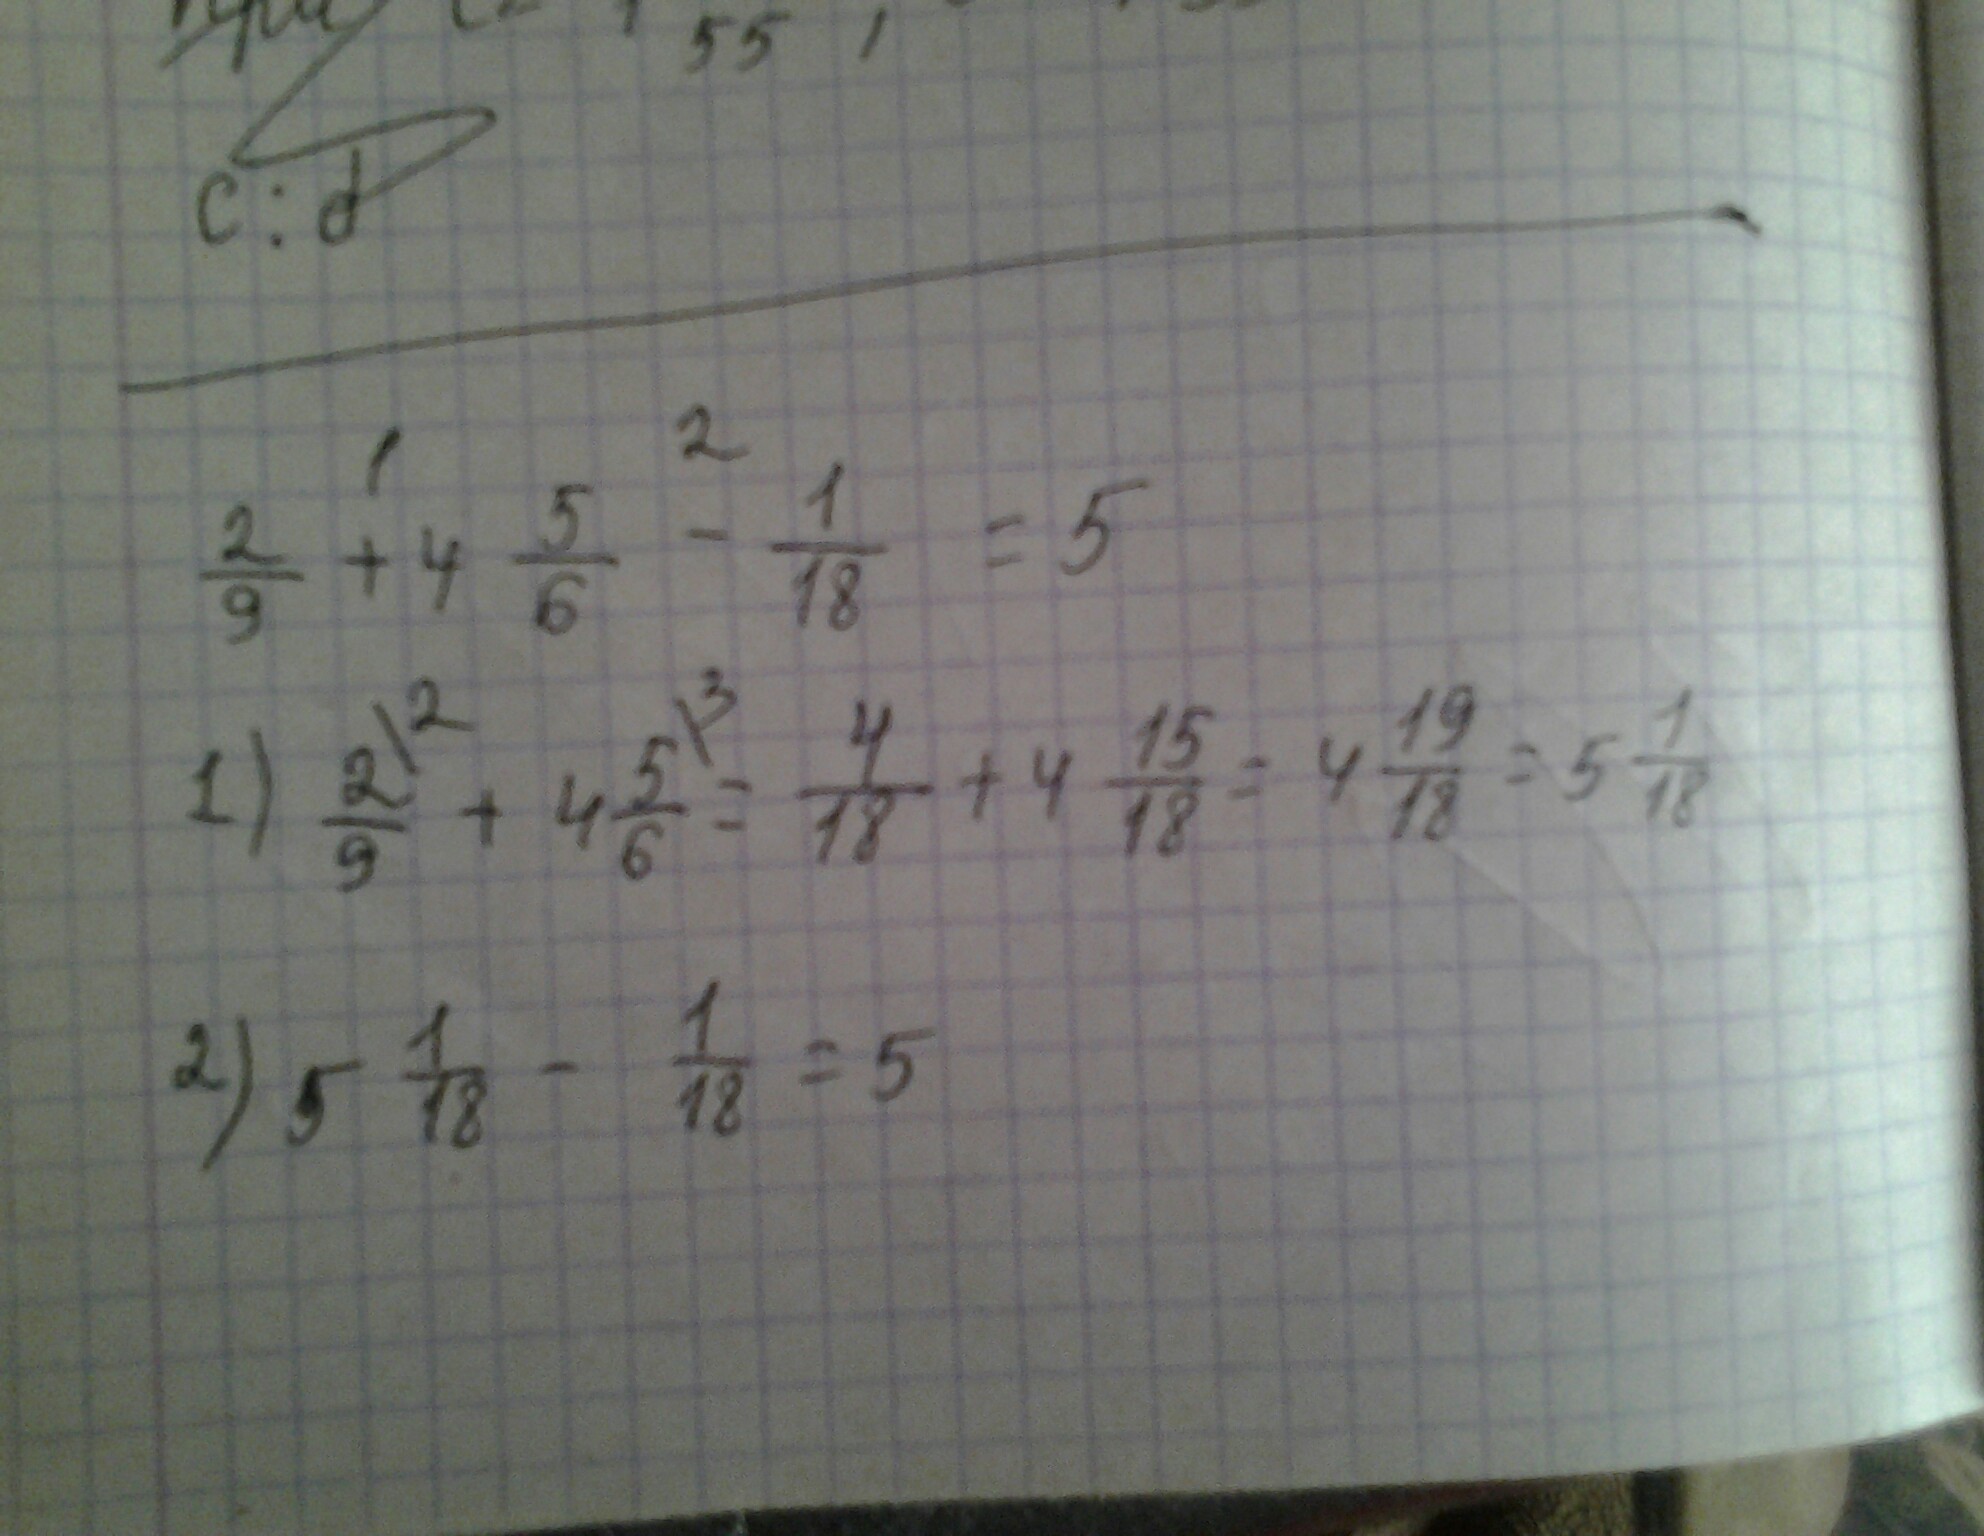 при
55 ,
c : d
1 2
2/9 + 4 5/6 - 1/18 = 5
1) 2/9\2 + 4 5/6\3 = 4/18 + 4 15/18 = 4 19/18 = 5 1/18
2) 5 1/18 - 1/18 = 5